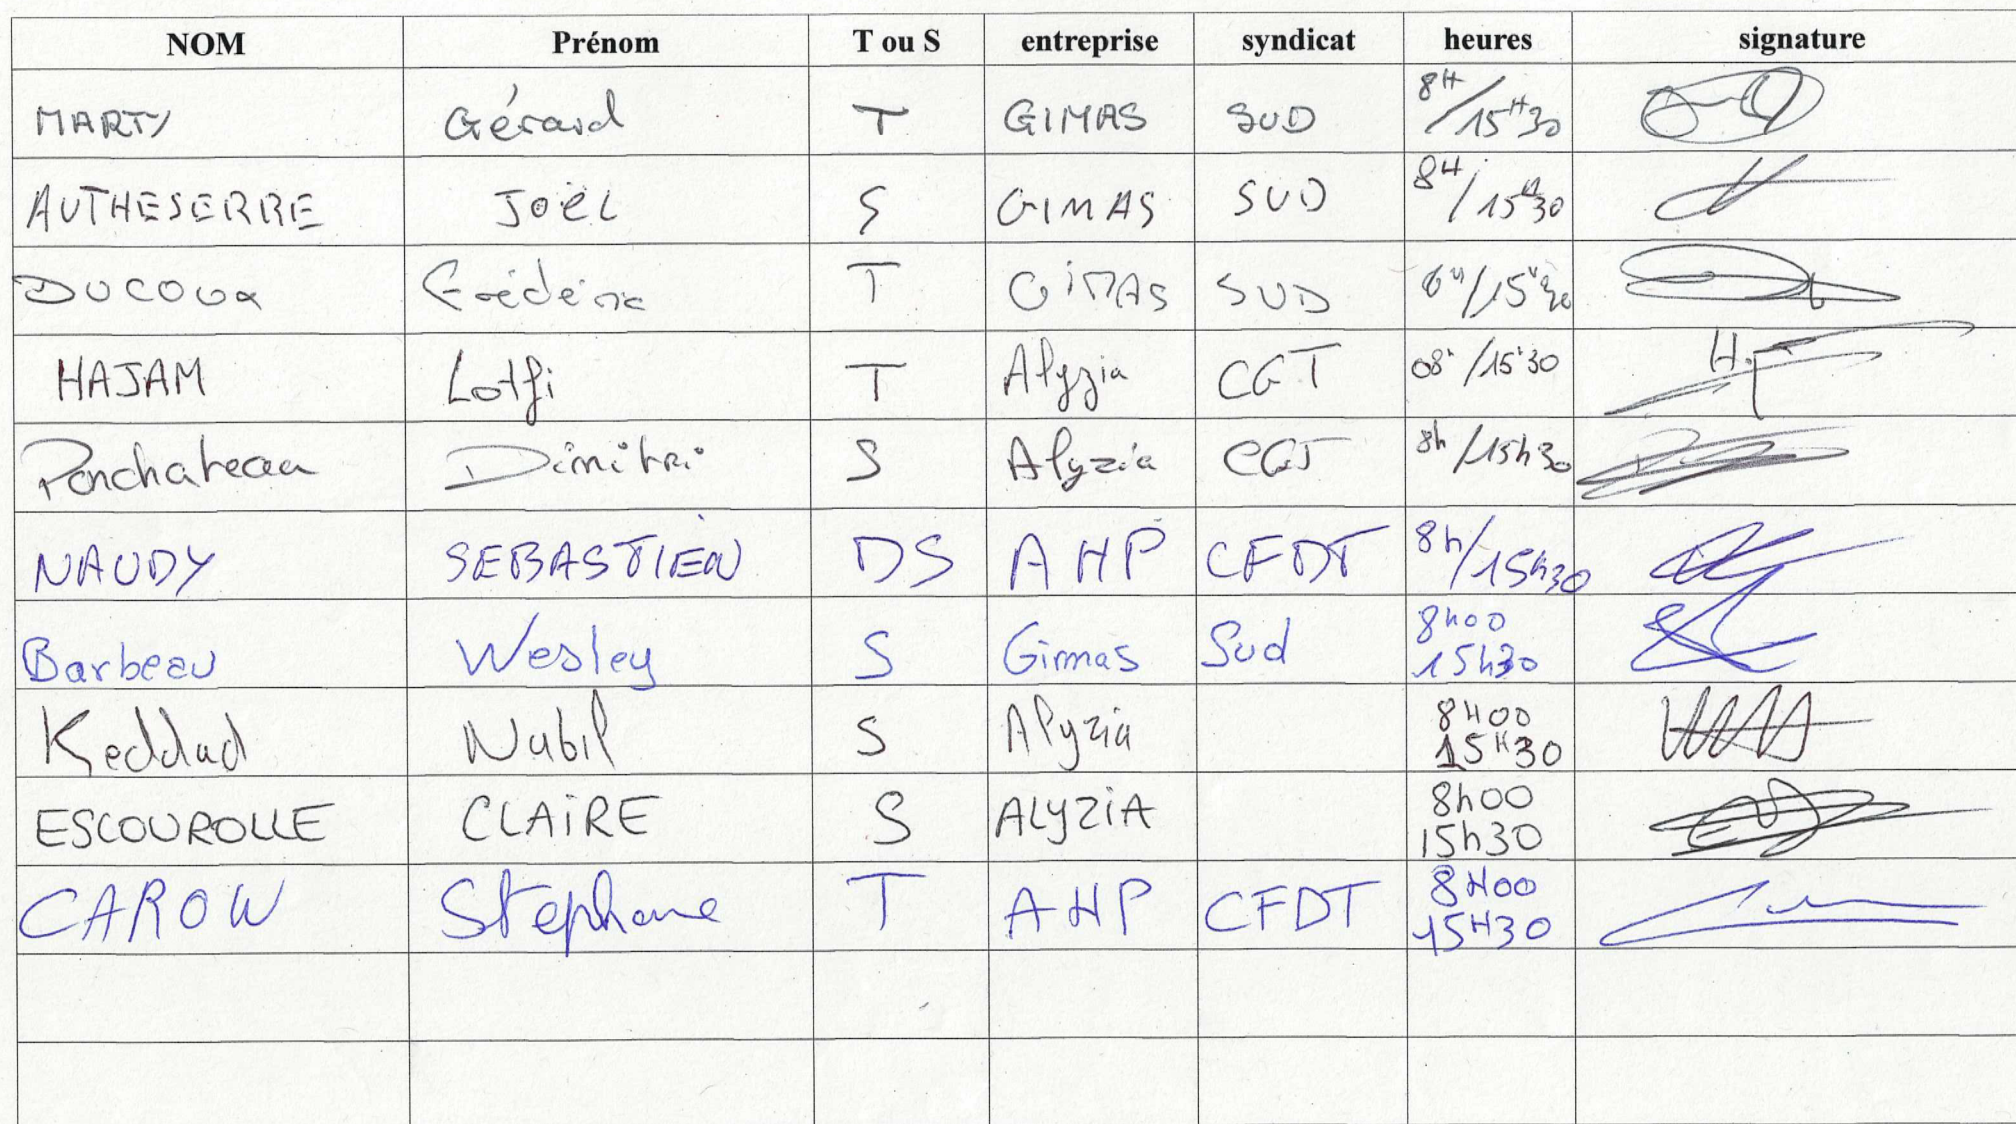 NOM Prénom T ou S entreprise syndicat heures signature
MARTY Gérard T GIMAS SUD 8H/15H30
AUTHESERRE Joël S GIMAS SUD 8H/15H30
DUCOUX Frédéric T GIMAS SUD 15H30
HAJAM Lotfi T Alyzia CGT 08h/15h30
Ponchateau Dimitri S Alyzia CGT 8h/15h30
NAUDY SEBASTIEN DS AHP CFDT 8h/15h30
Barbeau Wesley S Gimas Sud 8h00 15h30
Keddad Nabil S Alyzia 8H00 15H30
ESCOUROLLE CLAIRE S ALYZIA 8h00 15h30
CAROW Stephane T AHP CFDT 8H00 15H30